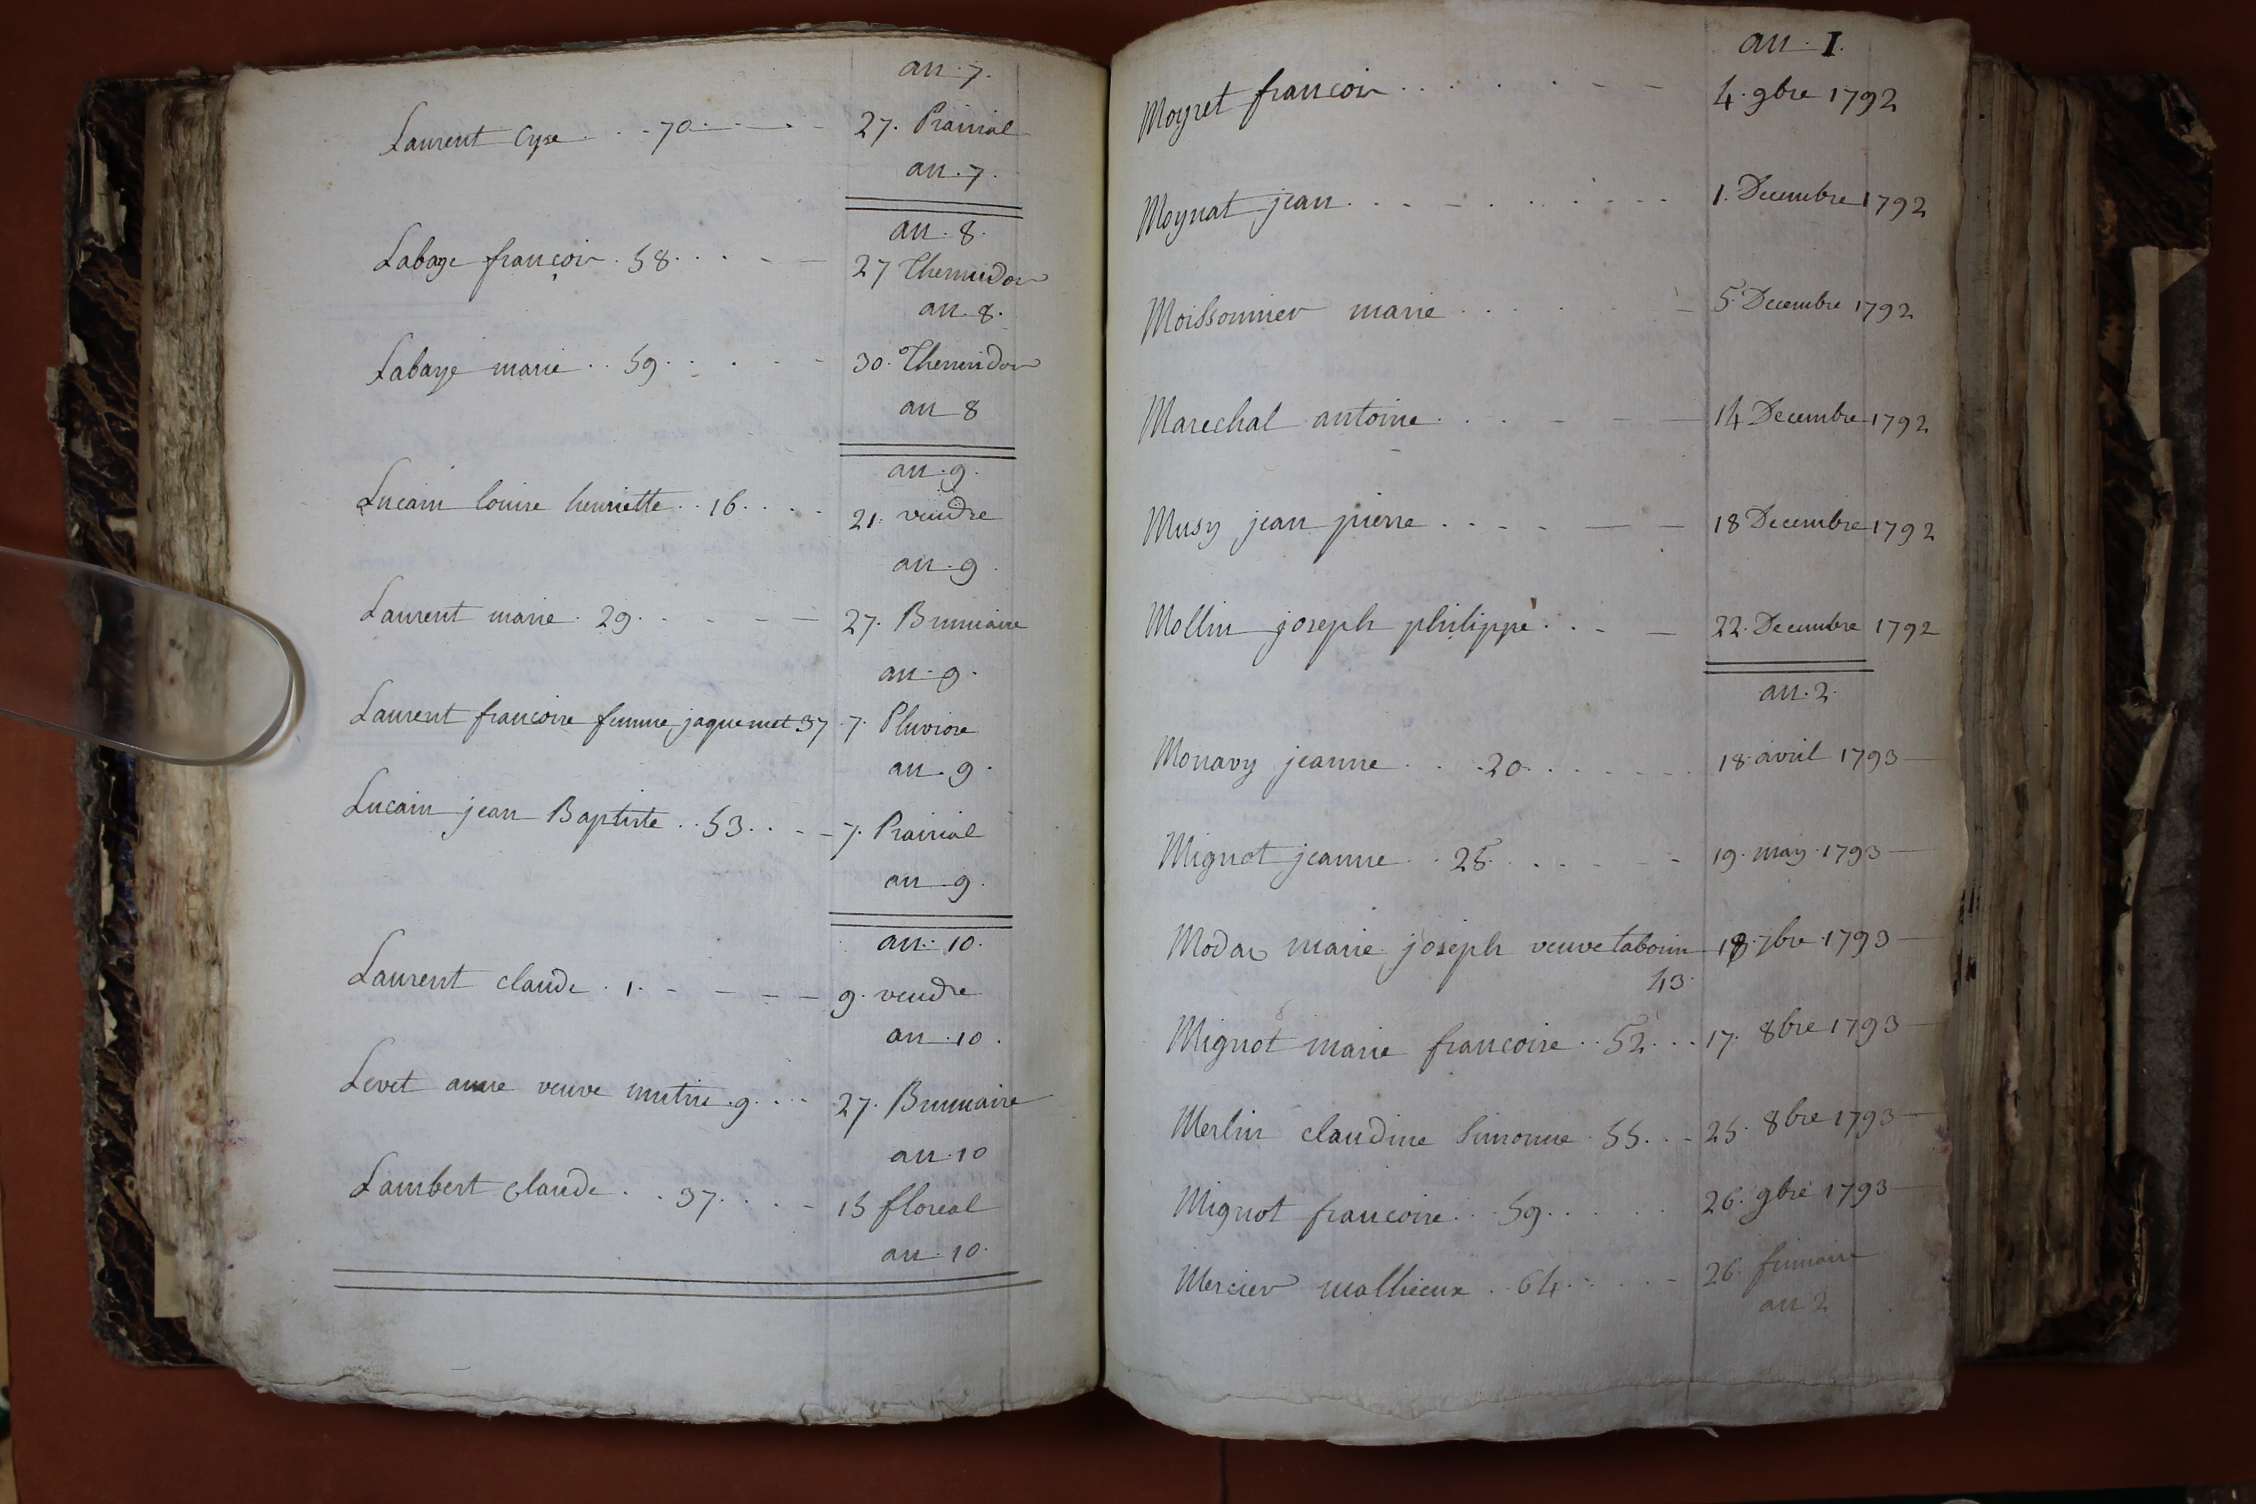 an. 7.
Laurent Cyse . . 70 . . . 27. Prairial
an. 7.
an. 8.
Labaye françois . 58 . . . 27 Thermidor
an. 8.
Labaye marie . . 59 . . . 30. Thermidor
an 8
an. 9.
Lucain louise henriette . . 16 . . . 21. vendre
an. 9.
Laurent marie . 29 . . . 27. Brumaire
an. 9.
Laurent francoise femme jaquemet 37 . 7. Pluviose
an. 9.
Lucain jean Baptiste . . 53 . . . 7. Prairial
an. 9.
an. 10.
Laurent claude . 1 . . . 9. vendre
an. 10.
Levet anne veuve mutin . 9 . . . 27. Brumaire
an. 10
Lambert claude . . 37 . . . 15 floreal
an. 10.
an. I.
Moyret francois . . . 4. 9bre 1792
Moynat jean . . . 1. Decembre 1792
Moissonnier marie . . . 5. Decembre 1792
Marechal antoine . . . 14 Decembre 1792
Musy jean pierre . . . 18 Decembre 1792
Mollin joseph philippe . . . 22. Decembre 1792
an. 2.
Monavy jeanne . . 20 . . . 18. avril 1793
Mignot jeanne . . 25 . . . 19. may. 1793
marie joseph veuve tabouin 18. 7bre 1793
43.
Mignot marie francoise . . 52 . . . 17. 8bre 1793
Merlin claudine Simonne . 55 . . 25. 8bre 1793
Mignot francoise . . . 59 . . . 26. 9bre 1793
Mercier mathieux . . 64 . . . 26. frimaire
an 2